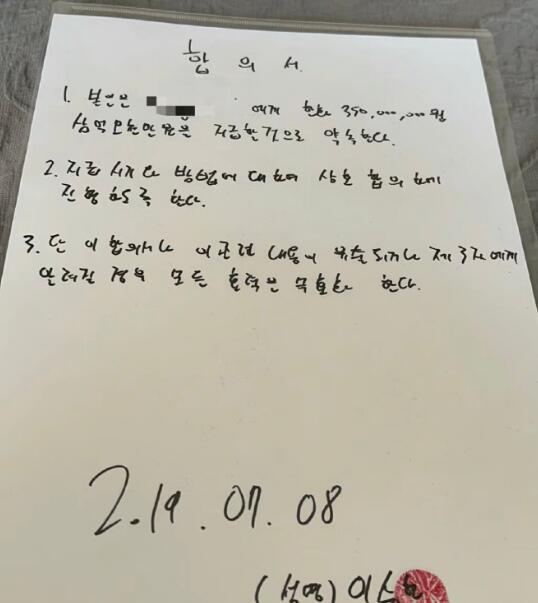 합 의 서
1. 본인은 에게 현화 350,000,000원
삼억오천만원을 지급할것으로 약속한다.
2. 지급 시기나 방법에 대하여 상호 합의하에
진행하도록 한다.
3. 단 이 합의서나 이 관련 내용이 유출되거나 제 3자에게
알려질 경우 모든 효력은 무효화 한다.
2.19.07.08
(성명) 이